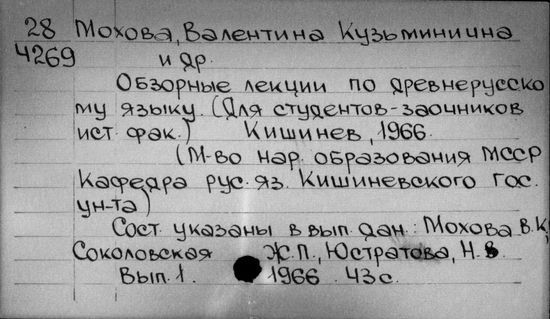 28 Мохова, Валентина Кузьминична
4269 и др.
Обзорные лекции по древнерусско
му языку. (Для студентов-заочников
ист. фак.) Кишинев, 1966.
(М-во нар. образования МССР
Кафедра рус. яз. Кишиневского гос.
ун-та)
Сост. указаны в вып. дан.: Мохова В.К,
Соколовская Ж.П., Юстратова, Н.В.
Вып. 1. 1966. 43 с.